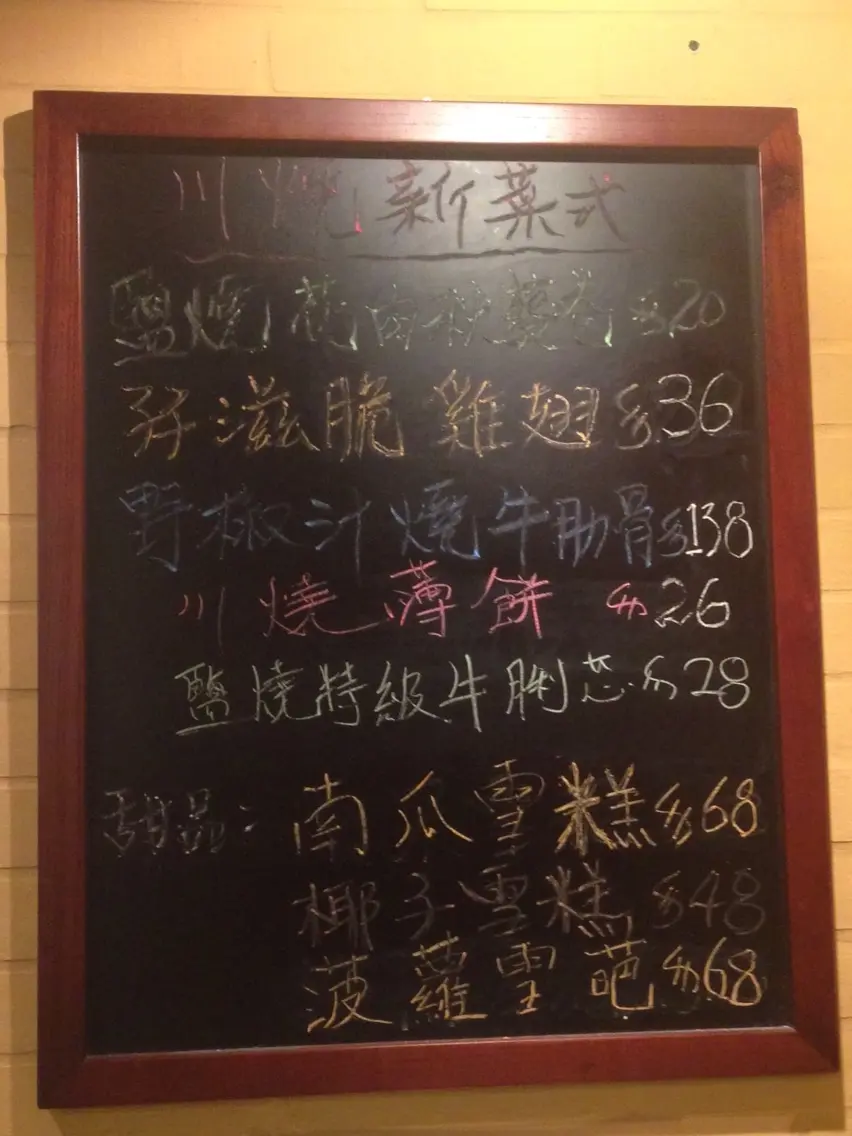 川燒新菜式
鹽燒花肉 $20
孜滋脆雞翅 $36
野椒汁燒牛肋骨 $138
川燒薄餅 $26
鹽燒特級牛脷芯 $28
甜品：南瓜雪糕 $68
椰子雪糕 $48
菠蘿雪葩 $68